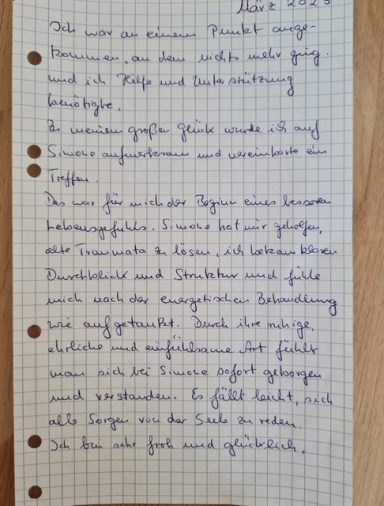 März 2023
Ich war an einem Punkt ange-
kommen, an dem nichts mehr ging
und ich Hilfe und Unterstützung
benötigte.
Zu meinem großen Glück wurde ich auf
Simone aufmerksam und vereinbarte ein
Treffen.
Das war für mich der Beginn eines besseren
Lebensgefühls. Simone hat mir geholfen,
alte Traumata zu lösen, ich bekam klaren
Durchblick und Struktur und fühle
mich nach der energetischen Behandlung
wie aufgetankt. Durch ihre ruhige,
ehrliche und einfühlsame Art fühlt
man sich bei Simone sofort geborgen
und verstanden. Es fällt leicht, sich
alle Sorgen von der Seele zu reden.
Ich bin sehr froh und glücklich,